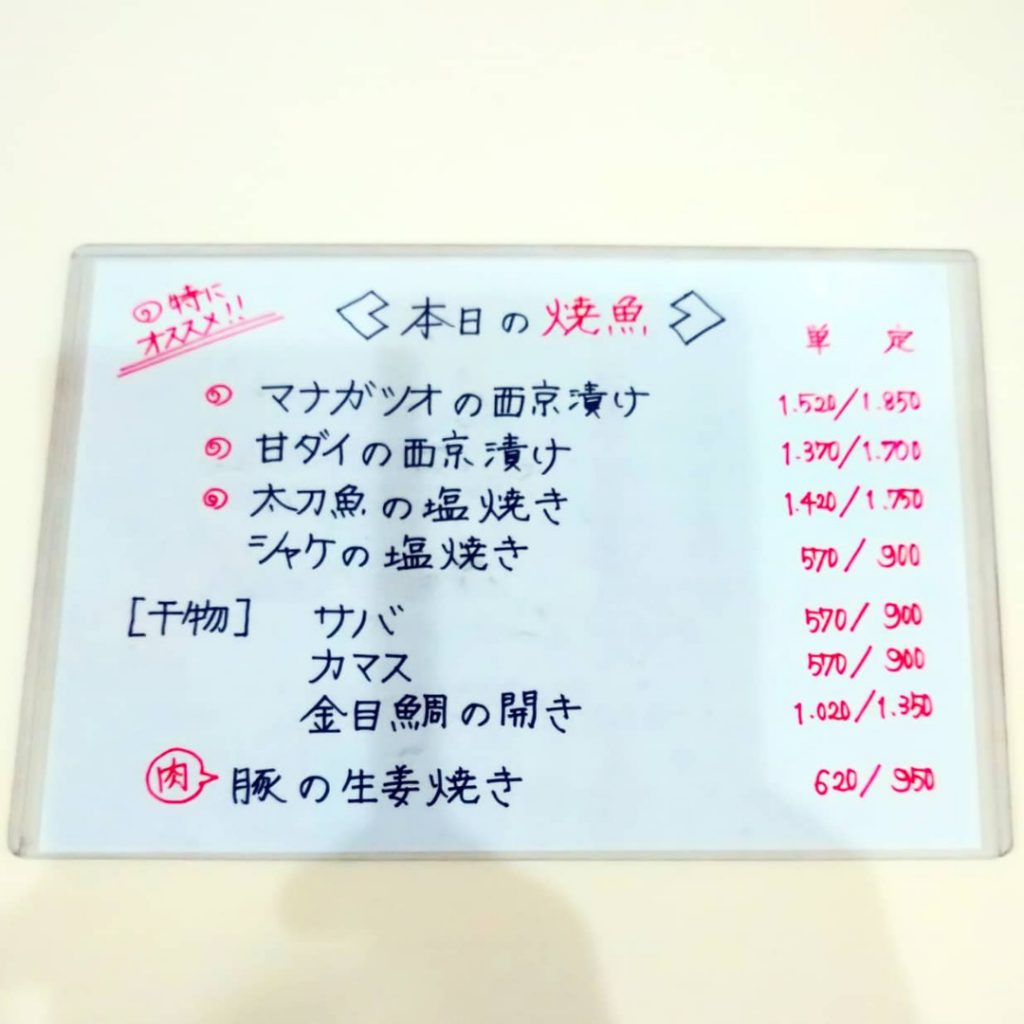 特に
オススメ!!
本日の焼魚
単 定
マナガツオの西京漬け 1.520/1.850
甘ダイの西京漬け 1.370/1.700
太刀魚の塩焼き 1.420/1.750
シャケの塩焼き 570/900
[干物] サバ 570/900
カマス 570/900
金目鯛の開き 1.020/1.350
肉 豚の生姜焼き 620/950